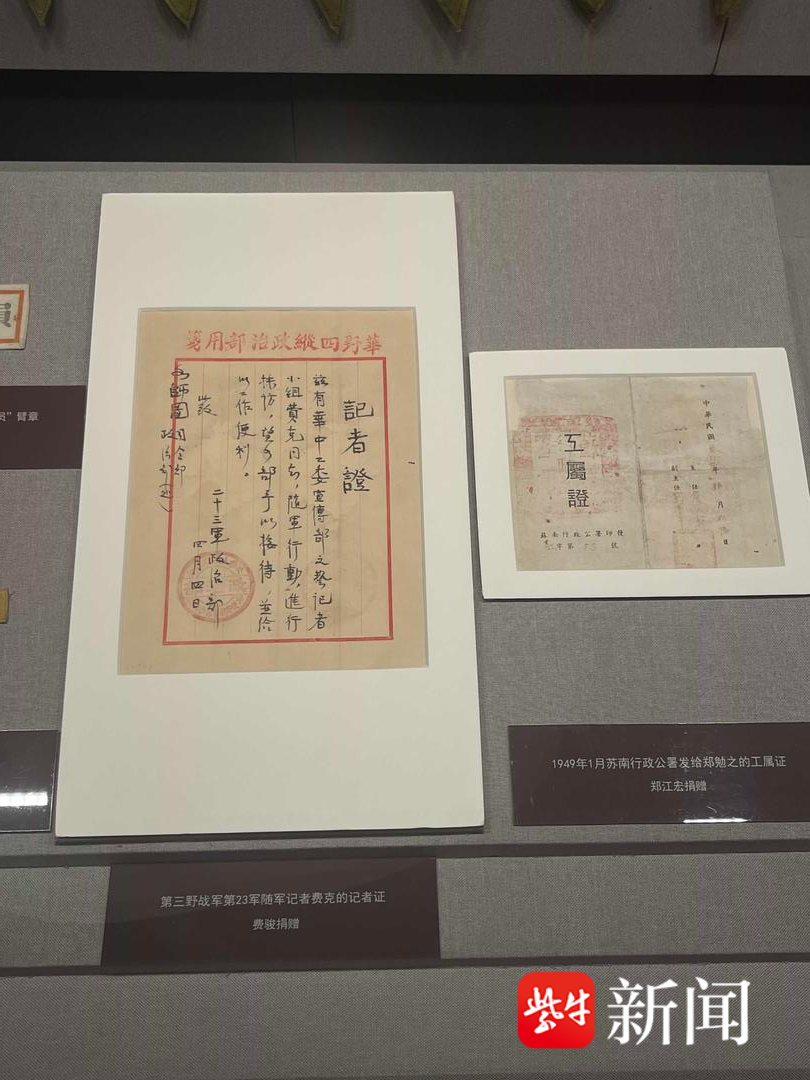 員
员”臂章
華野四縱政治部用箋
記者證
茲有華中工委宣傳部文藝記者
小組費克同志,隨軍行動,進行
採訪,望各部予以接待,並给
以工作便利。
此致
各師團司令部
政治部(處)
二十三軍政治部
四月四日
第三野战军第23军随军记者费克的记者证
费骏捐赠
中華民國
年
月
日
主任
副主任
工屬證
蘇南行政公署印發
字第
號
1949年1月苏南行政公署发给郑勉之的工属证
郑江宏捐赠
紫牛新闻